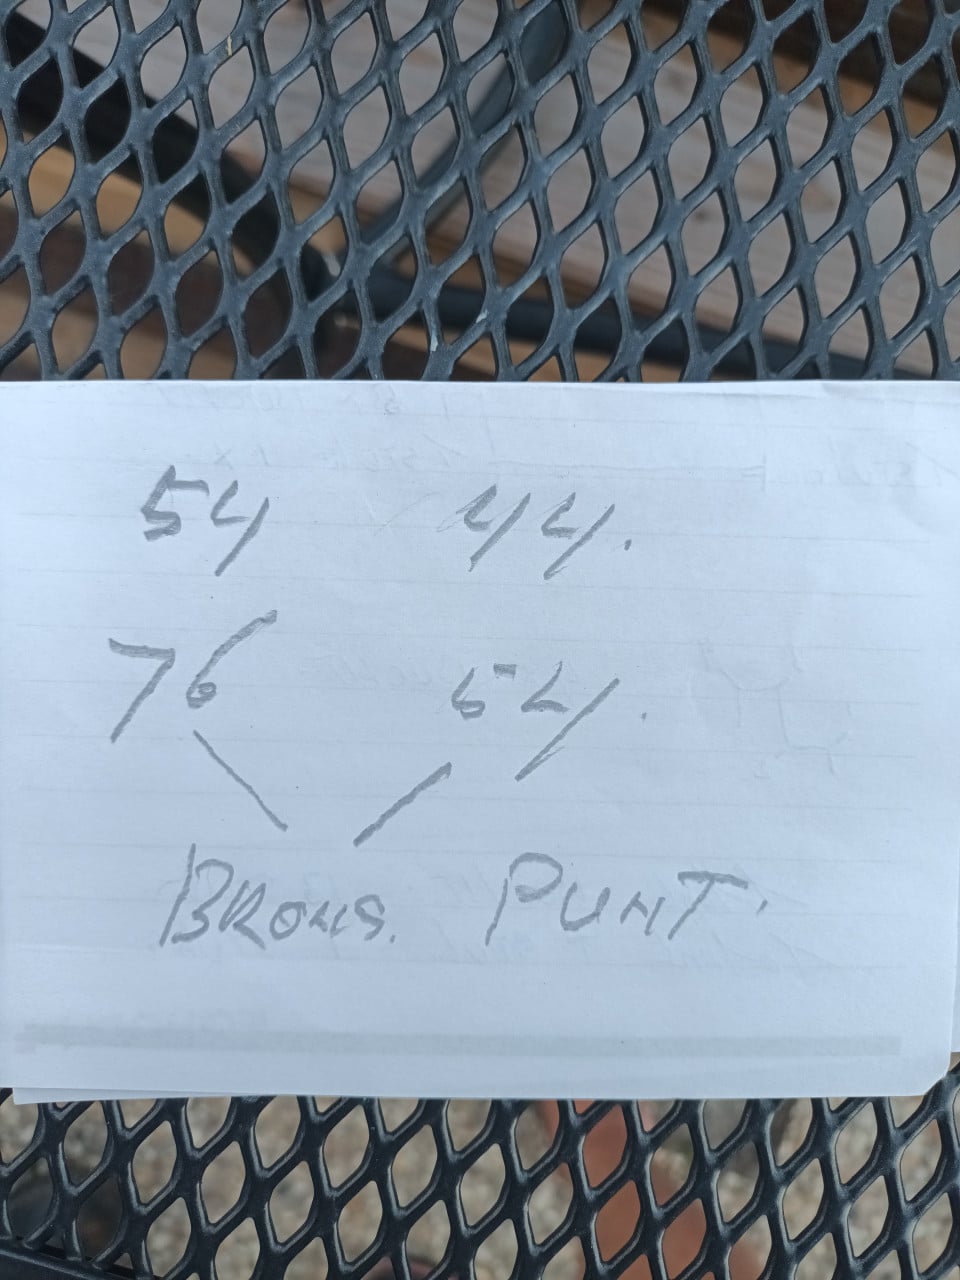 54 44.
76 54.
BRONS. PUNT.